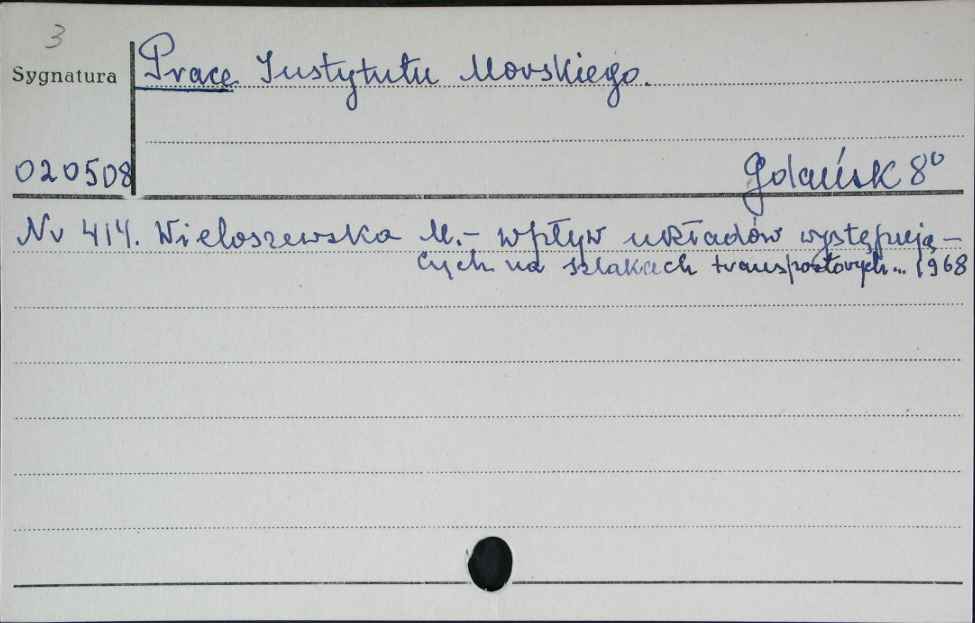 3
Sygnatura
Prace Instytutu Morskiego.
020508
Gdańsk 8°
Nr 414. Wieloszewska M. – Wpływ układów występują-
cych na szlakach transportowych... 1968